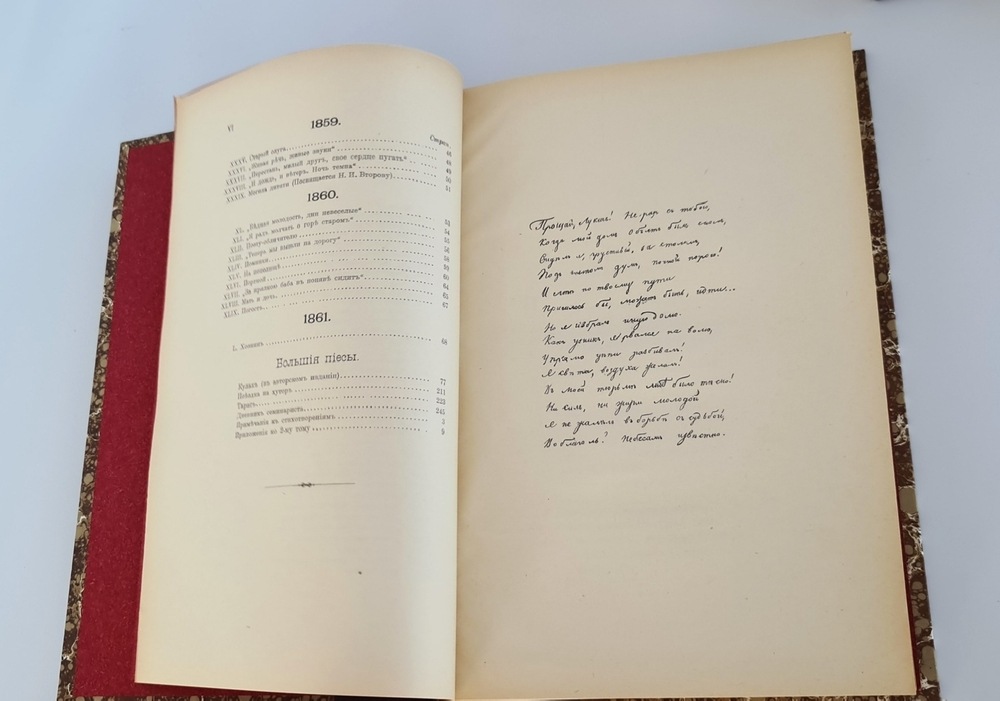 VI
1859.
Стран.
XXXV. Старый слуга 46
XXXVI. „Живая рѣчь, живые звуки“ 48
XXXVII. „Перестань, милый другъ, свое сердце пугать“ 49
XXXVIII. „И дождь, и вѣтеръ. Ночь темна“ 50
XXXIX. Мщенія (Посвящается Н. И. Второву) 51
1860.
XL. „Бѣдная молодость, дни невеселые“ 53
XLI. „Я радъ молчать о горѣ старомъ“ 54
XLII. Поэту-обличителю 55
XLIII. „Теперь мы вышли на дорогу“ 56
XLIV. Поминки 58
XLV. На пепелищѣ 59
XLVI. Портной 60
XLVII. „За прялкою баба въ поневѣ сидитъ“ 64
XLVIII. Мать и дочь 65
XLIX. Повѣсть 67
1861.
L. Хозяинъ 68
Большія піесы.
Кулакъ (въ авторскомъ изданіи) 77
Поѣздка на хуторъ 211
Тарасъ 223
Дневникъ семинариста 245
Примѣчанія къ стихотвореніямъ 3
Приложенія ко 2-му тому 9
Прощай, Лукич! Не раз с тобой,
Когда мой дом объят был сном,
Сидел я, грустный, за столом,
Под гнетом дум, ночной порою!
И мне по твоему пути
Пришлось бы, может быть, идти...
Но я избрал иную долю.
Какъ узник, я рвался на волю,
Упрямо цепи разбивал!
Я света, воздуха желал!
Въ моей тюрьме мне было тесно!
Ни сил, ни жизни молодой
Я не жалел въ борьбе съ судьбой,
Во благо ль? Небесам известно.